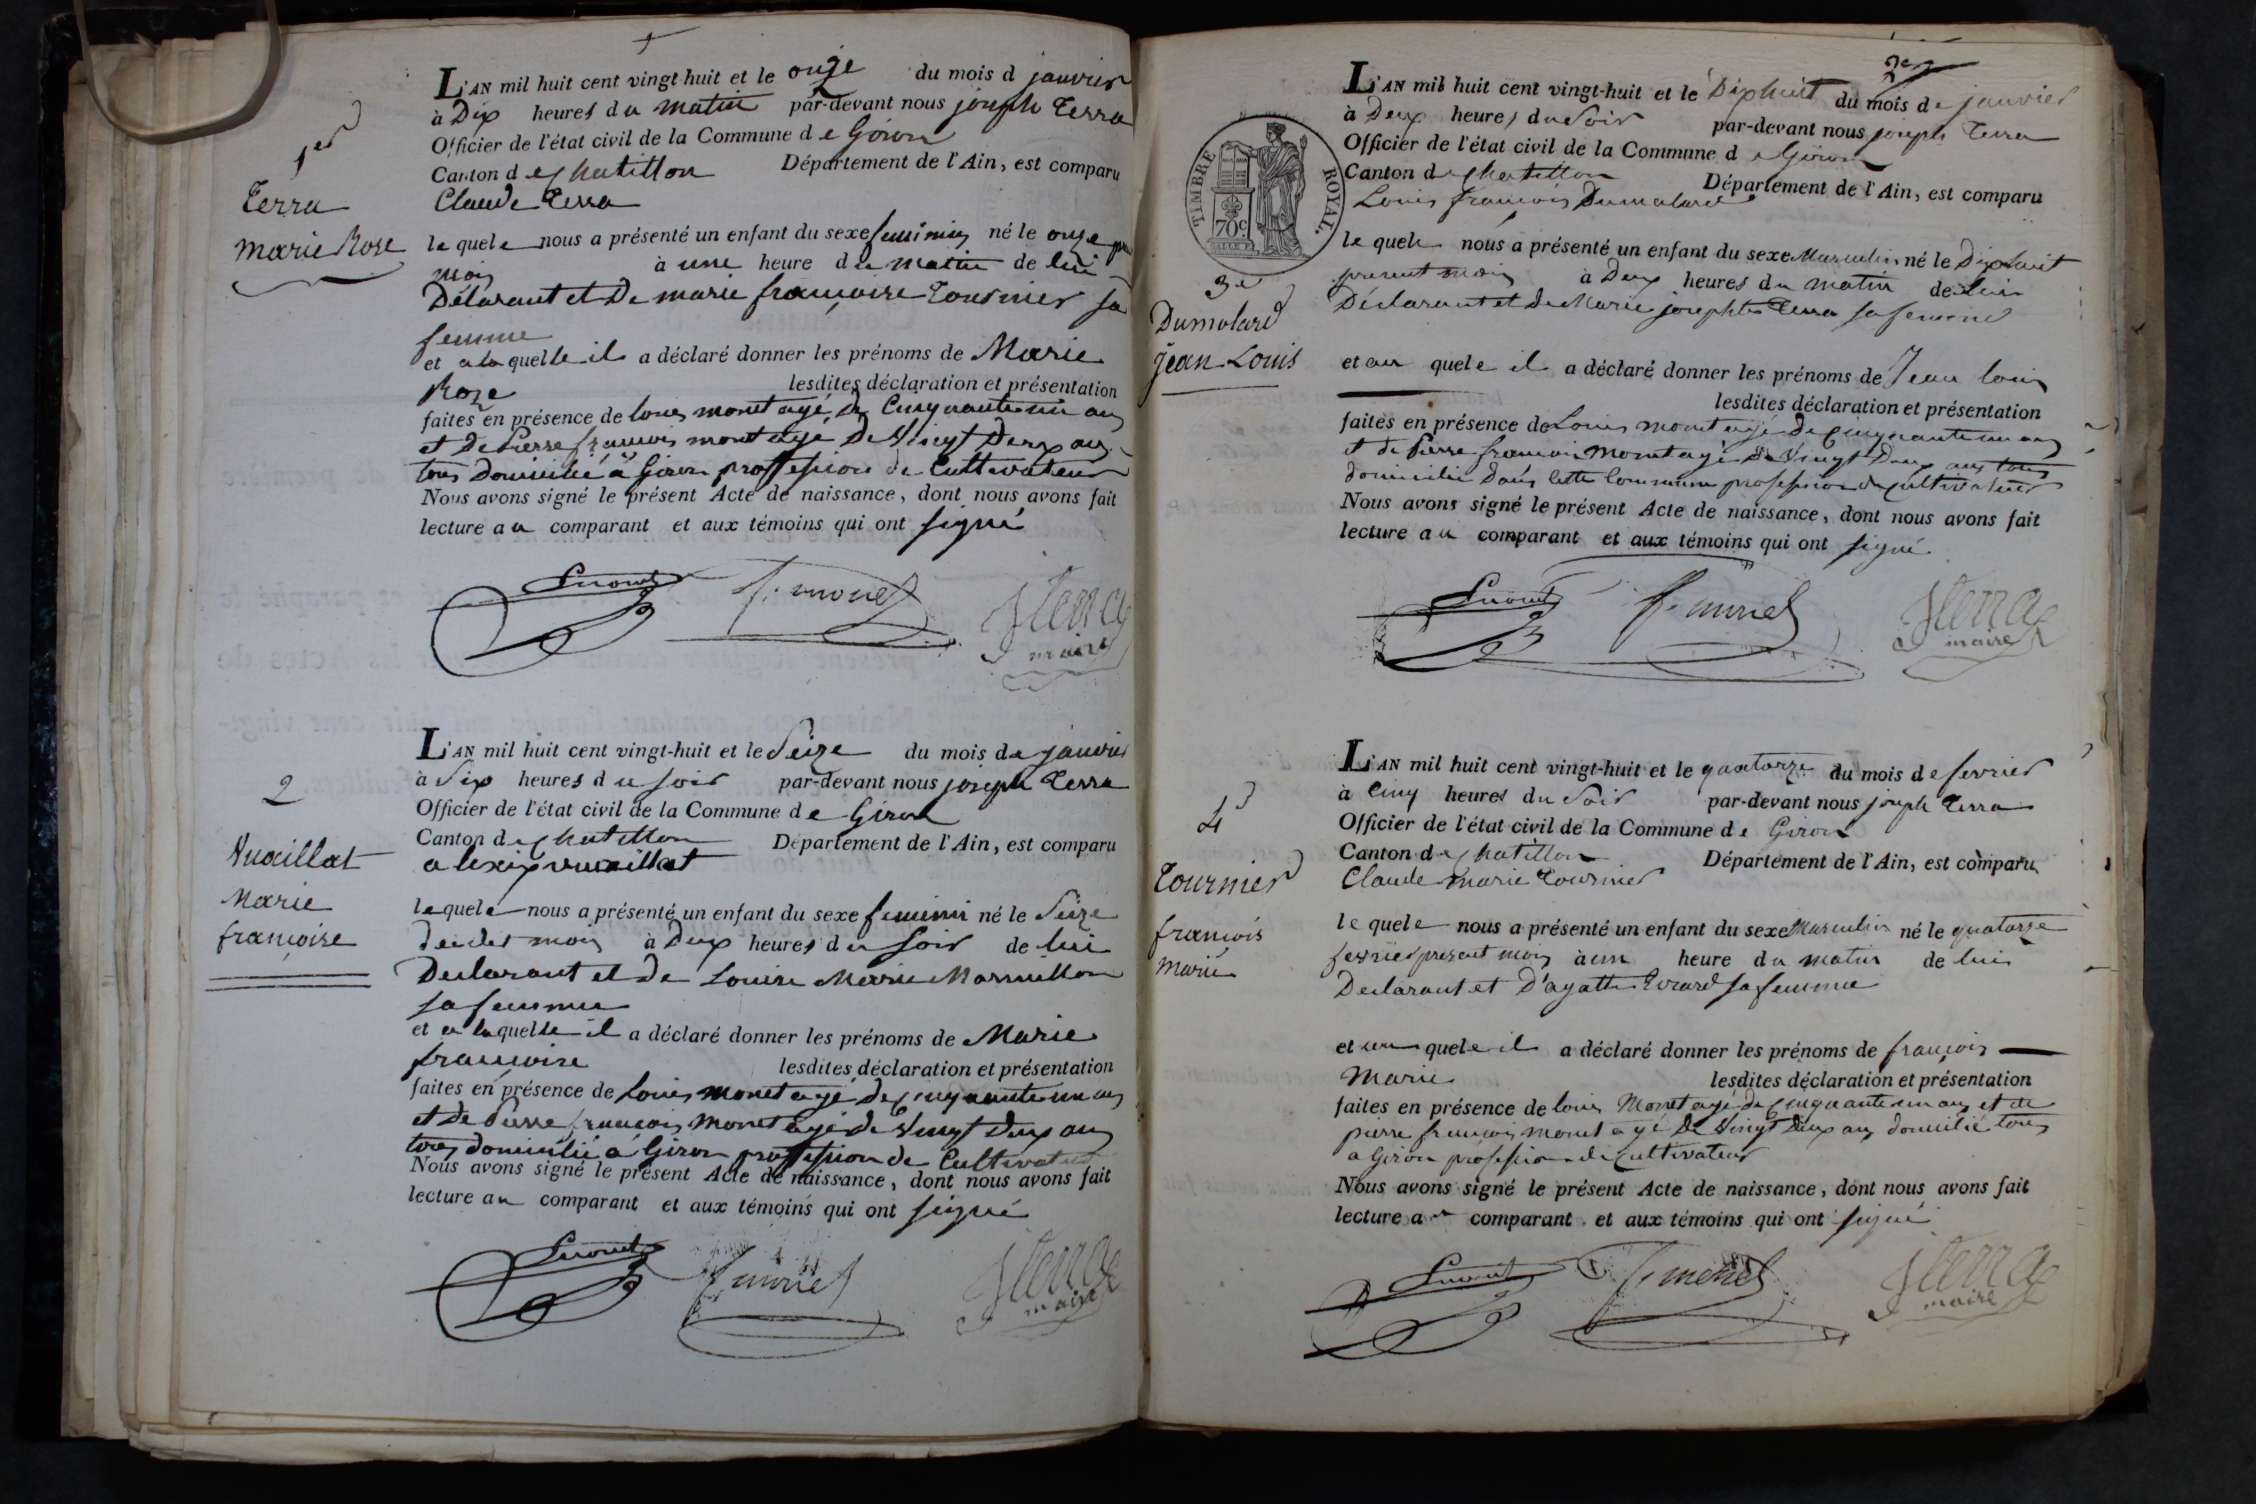 1er
Terra
Marie Rose
L'AN mil huit cent vingt-huit et le onze du mois d janvier
à Dix heures du matin par-devant nous joseph Terra
Officier de l'état civil de la Commune de Giron
Canton de chatillon Département de l'Ain, est comparu
Claude Terra
lequele nous a présenté un enfant du sexe feminin né le onze
mois à une heure du matin de lui
Déclarant et De marie françoise tournier sa
femme
et a laquelle il a déclaré donner les prénoms de Marie
Roze lesdites déclaration et présentation
faites en présence de louis monet agé de Cinquante un ans
et De Pierre françois monet agé De Vingt Deux ans
tous Domicilié à Giron proffession de Cultivateur
Nous avons signé le présent Acte de naissance, dont nous avons fait
lecture au comparant et aux témoins qui ont signé
Lmonet f. monet JTerra
maire
2
Vuaillat
Marie
françoise
L'AN mil huit cent vingt-huit et le Seize du mois de janvier
à Six heures du soir par-devant nous joseph Terra
Officier de l'état civil de la Commune de Giron
Canton de chatillon Département de l'Ain, est comparu
alexix vuaillat
lequele nous a présenté un enfant du sexe feminin né le Seize
mois à Deux heures du soir de lui
Declarant et De Louise Marie Marmillon
sa femme
et a laquelle il a déclaré donner les prénoms de Marie
françoise lesdites déclaration et présentation
faites en présence de louis monet agé de cinquante un ans
et De Pierre françois monet agé de Vingt Deux ans
tous domicilié à Giron proffession de Cultivateur
Nous avons signé le présent Acte de naissance, dont nous avons fait
lecture au comparant et aux témoins qui ont signé
Lmonet f monet JTerra
maire
TIMBRE ROYAL.
70c
3e
Dumolard
jean Louis
L'AN mil huit cent vingt-huit et le Dixhuit du mois de janvier
à Deux heures du Soir par-devant nous joseph Terra
Officier de l'état civil de la Commune de Giron
Canton de chatillon Département de l'Ain, est comparu
Louis françois Dumolard
lequele nous a présenté un enfant du sexe Masculin né le Dixhuit
present mois à Deux heures du matin de lui
Déclarant et de Marie josephte Terra sa femme
et au quele il a déclaré donner les prénoms de Jean louis
lesdites déclaration et présentation
faites en présence de Louis monet agé de cinquante un ans
et de Pierre françois Monet agé de Vingt Deux ans tous
domicilié dans cette Commune profession de cultivateur
Nous avons signé le présent Acte de naissance, dont nous avons fait
lecture au comparant et aux témoins qui ont signé
Lmonet f. monet JTerra
maire
4
Tournier
françois
marie
L'AN mil huit cent vingt-huit et le quatorze du mois de fevrier
à Cinq heures du Soir par-devant nous joseph Terra
Officier de l'état civil de la Commune de Giron
Canton de chatillon Département de l'Ain, est comparu
Claude marie Tournier
lequele nous a présenté un enfant du sexe Masculin né le quatorze
fevrier present mois à une heure du matin de lui
Declarant et D'agatte Evrard sa femme
et au quele il a déclaré donner les prénoms de françois
Marie lesdites déclaration et présentation
faites en présence de louis Monet agé de cinquante un ans et de
pierre françois monet agé De Vingt Deux ans domicilié tous
a Giron profession de Cultivateur
Nous avons signé le présent Acte de naissance, dont nous avons fait
lecture au comparant et aux témoins qui ont signé
Lmonet f. monet JTerra
maire